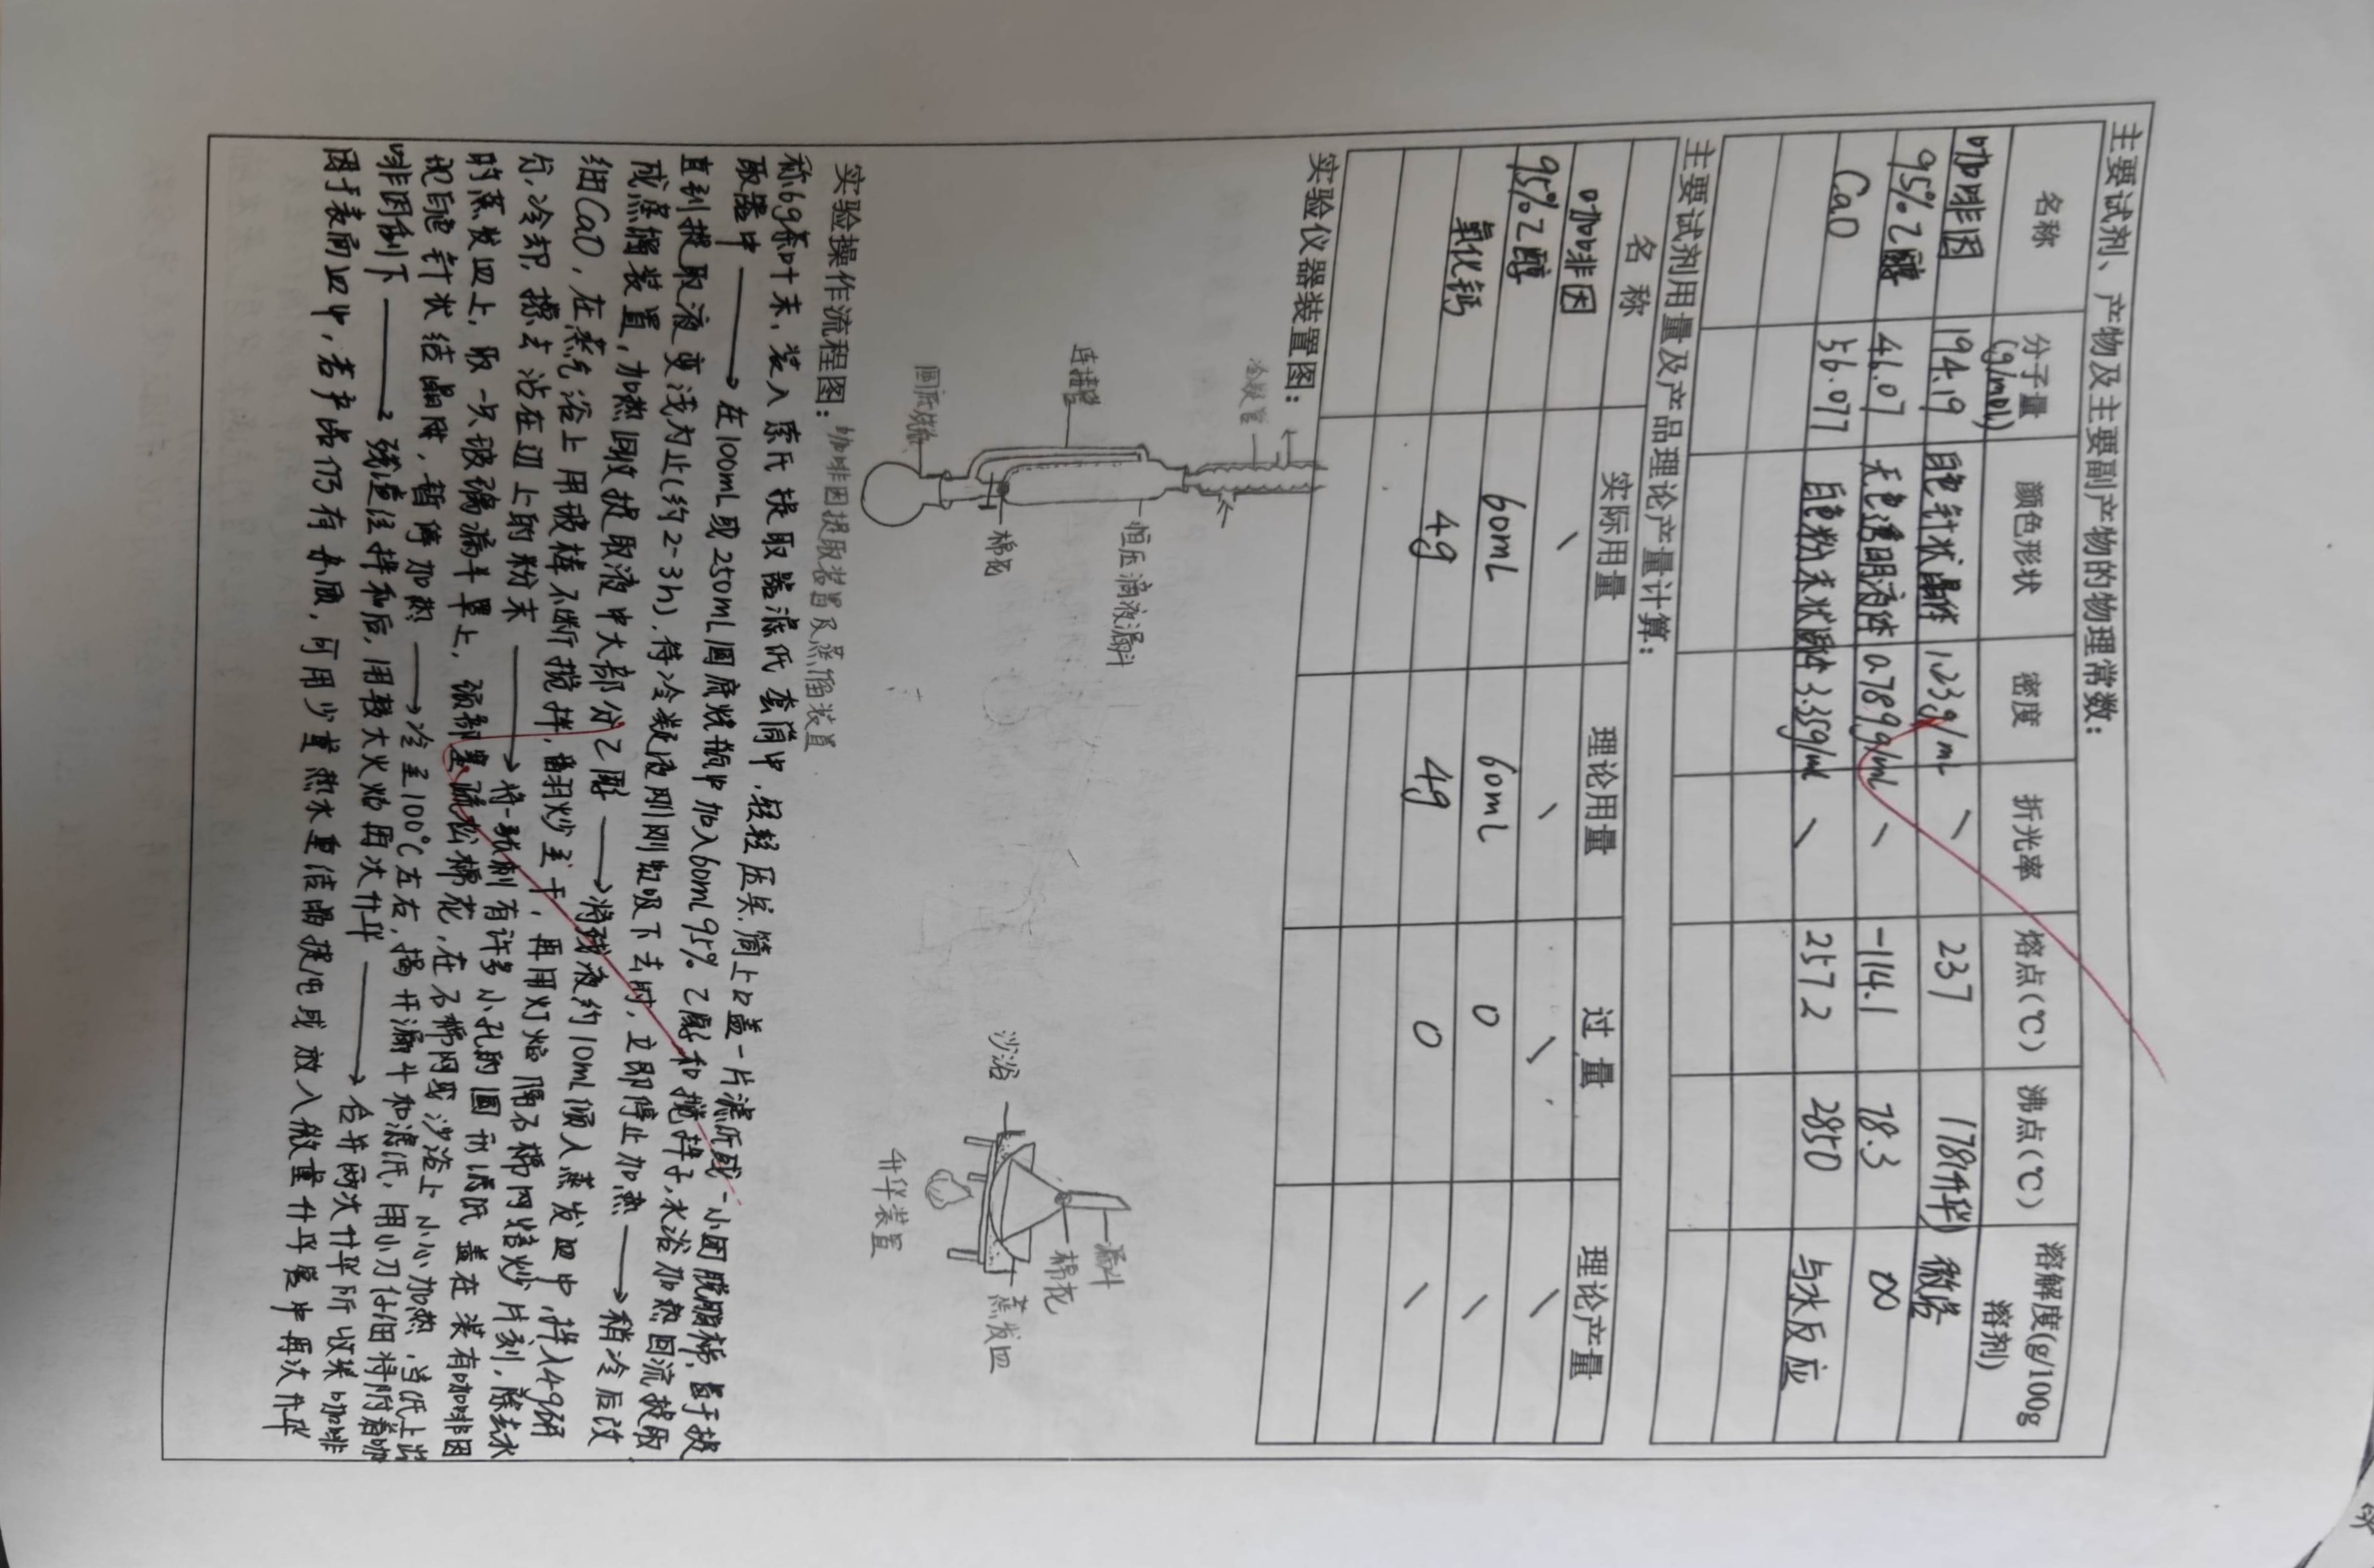 主要试剂、产物及主要副产物的物理常数:
名称 分子量(g/mol) 颜色形状 密度 折光率 熔点(℃) 沸点(℃) 溶解度(g/100g溶剂)
咖啡因 194.19 白色针状晶体 1.23g/mL \ 237 178(升华) 微溶
95%乙醇 46.07 无色透明液体 0.789g/mL \ -114.1 78.3 ∞
CaO 56.077 白色粉末状固体 3.35g/ml \ 2572 2850 与水反应
主要试剂用量及产品理论产量计算:
名称 实际用量 理论用量 过量 理论产量
咖啡因 \ \ \ \
95%乙醇 60mL 60mL 0 \
氧化钙 4g 4g 0 \
实验仪器装置图:
冷凝管
连接管
恒压滴液漏斗
棉花
圆底烧瓶
咖啡因提取装置及蒸馏装置
漏斗
棉花
蒸发皿
沙浴
升华装置
实验操作流程图:
称6g茶叶末,装入索氏提取器滤纸套筒中,轻轻压实,筒上口盖一片滤纸或一小团脱脂棉,置于提
取器中 → 在100mL或250mL圆底烧瓶中加入60mL95%乙醇和搅拌子,水浴加热回流提取
直到提取液变浅为止(约2-3h),待冷凝液刚刚虹吸下去时,立即停止加热 → 稍冷后改
成蒸馏装置,加热回收提取液中大部分乙醇 → 将残液约10mL倾入蒸发皿中,拌入4g研
细CaO,在蒸汽浴上用玻棒不断搅拌,翻炒至干,再用灯焰隔石棉网焙炒片刻,除去水
分,冷却,擦去沾在边上的粉末 → 将一张刺有许多小孔的圆形滤纸盖在装有咖啡因
的蒸发皿上,取一只玻璃漏斗罩上,颈部塞疏松棉花,在石棉网或沙浴上小心加热,当纸上出
现白色针状结晶时,暂停加热 → 冷至100°C左右,揭开漏斗和滤纸,用小刀仔细将附着咖
啡因刮下 → 残渣经拌和后,用较大火焰再次升华 → 合并两次升华所收集咖啡
因于表面皿中,若产品仍有杂质,可用少量热水重结晶提纯或放入微量升华管中再次升华